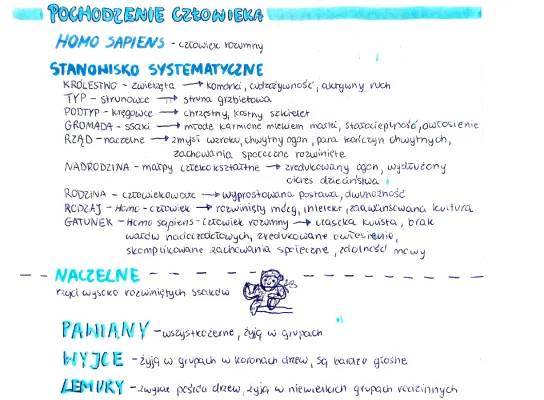 POCHODZENIE CZŁOWIEKA
HOMO SAPIENS - człowiek rozumny
STANOWISKO SYSTEMATYCZNE
KRÓLESTWO - zwierzęta → komórki, cudzożywność, aktywny ruch
TYP - strunowce → struna grzbietowa
PODTYP - kręgowce → chrzęstny, kostny szkielet
GROMADA - ssaki → młode karmione mlekiem matki, stałocieplność, owłosienie
RZĄD - naczelne → zmysł wzroku, chwytny ogon, para kończyn chwytnych,
zachowania społeczne rozwinięte
NADRODZINA - małpy człekokształtne → zredukowany ogon, wydłużony
okres dzieciństwa
RODZINA - człowiekowate → wyprostowana postawa, dwunożność
RODZAJ - Homo - człowiek → rozwinięty mózg, intelekt, zaawansowana kultura
GATUNEK - Homo sapiens - człowiek rozumny → czaszka kulista, brak
wałów nadoczodołowych, zredukowane owłosienie,
skomplikowane zachowania społeczne, zdolność mowy
NACZELNE
rząd wysoko rozwiniętych ssaków
PAWIANY - wszystkożerne, żyją w grupach
WYJCE - żyją w grupach w koronach drzew, są bardzo głośne
LEMURY - zwykle pośród drzew, żyją w niewielkich grupach rodzinnych